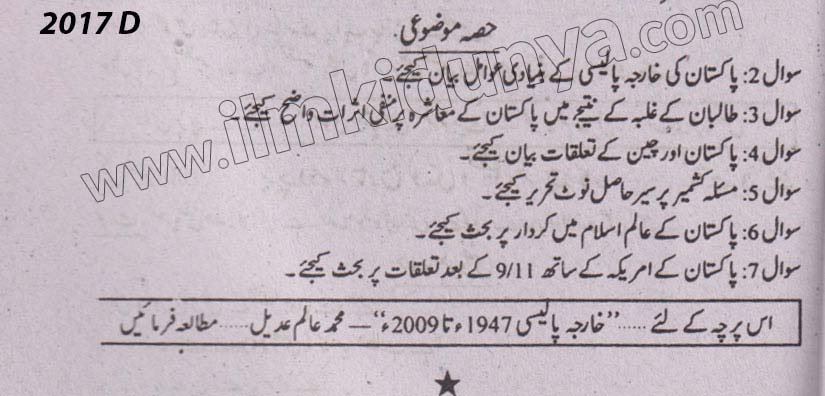 2017 D
حصہ موضوعی
سوال 2: پاکستان کی خارجہ پالیسی کے بنیادی عوامل بیان کیجئے۔
سوال 3: طالبان کے غلبہ کے نتیجے میں پاکستان کے معاشرہ پر منفی اثرات واضح کیجئے۔
سوال 4: پاکستان اور چین کے تعلقات بیان کیجئے۔
سوال 5: مسئلہ کشمیر پر سیر حاصل نوٹ تحریر کیجئے۔
سوال 6: پاکستان کے عالم اسلام میں کردار پر بحث کیجئے۔
سوال 7: پاکستان کے امریکہ کے ساتھ 9/11 کے بعد تعلقات پر بحث کیجئے۔
اس پرچہ کے لئے ..... "خارجہ پالیسی 1947ء تا 2009ء" — محمد عالم عدیل ..... مطالعہ فرمائیں
www.ilmkidunya.com